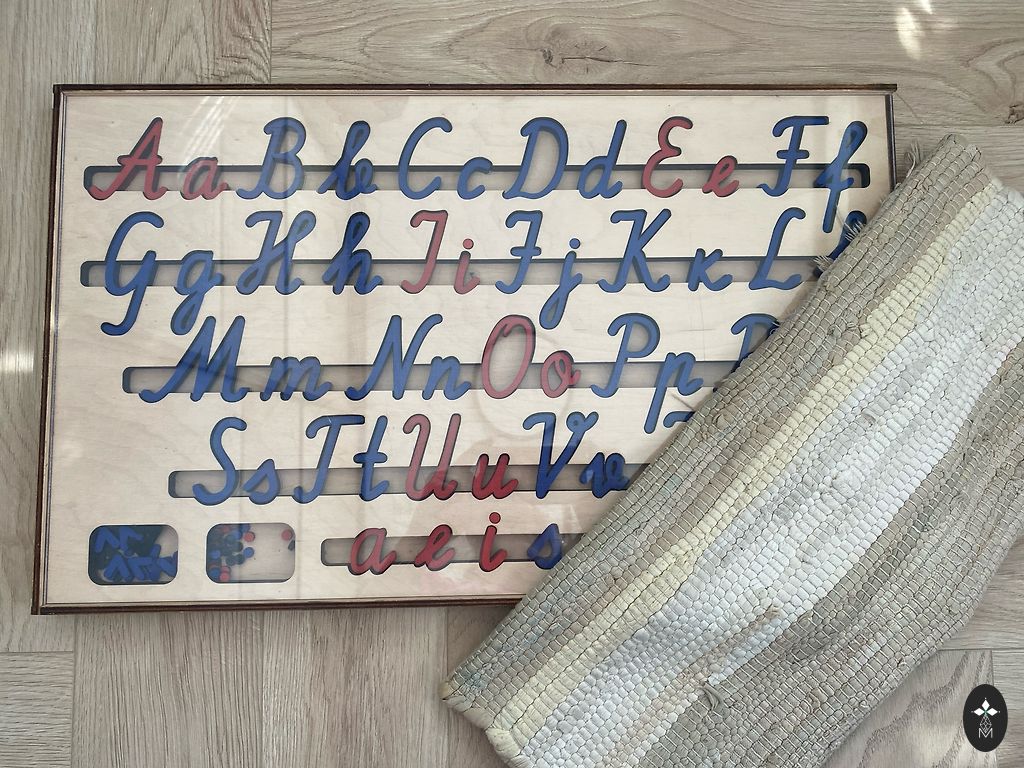 A a B b C c D d E e F f
G g H h I i J j K k L
M m N n O o P p
S s T t U u V v
a e i s
M